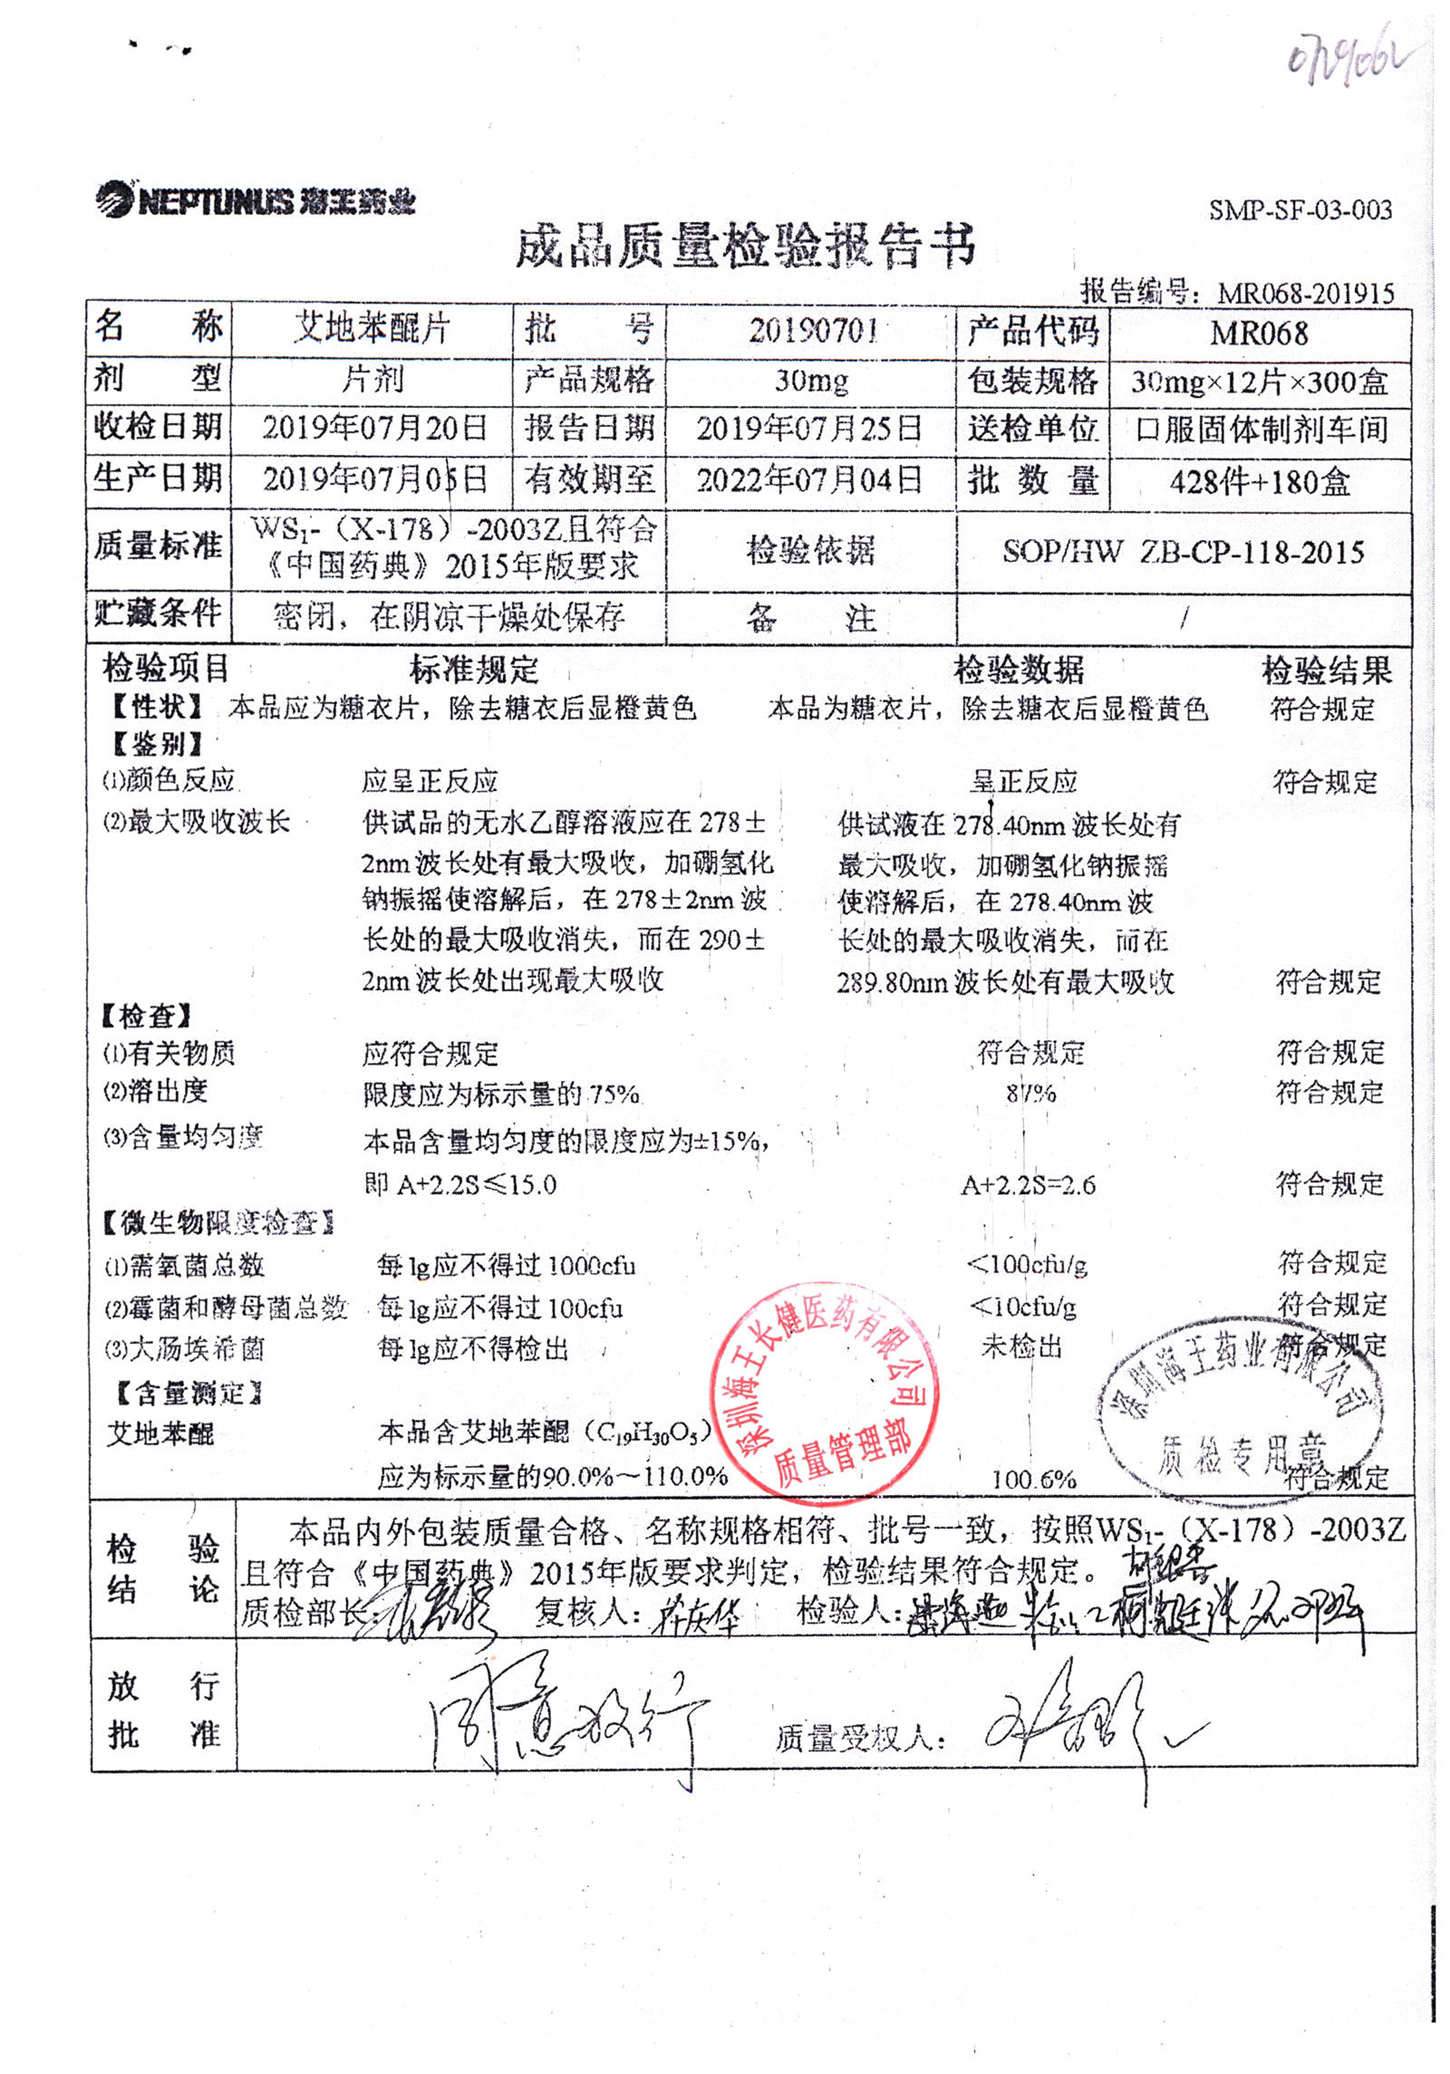 NEPTUNUS 海王药业
SMP-SF-03-003
成品质量检验报告书
报告编号：MR068-201915
名 称 艾地苯醌片 批 号 20190701 产品代码 MR068
剂 型 片剂 产品规格 30mg 包装规格 30mg×12片×300盒
收检日期 2019年07月20日 报告日期 2019年07月25日 送检单位 口服固体制剂车间
生产日期 2019年07月05日 有效期至 2022年07月04日 批 数 量 428件+180盒
质量标准 WS₁-（X-178）-2003Z且符合
《中国药典》2015年版要求 检验依据 SOP/HW ZB-CP-118-2015
贮藏条件 密闭，在阴凉干燥处保存 备 注 /
检验项目 标准规定 检验数据 检验结果
【性状】 本品应为糖衣片，除去糖衣后显橙黄色 本品为糖衣片，除去糖衣后显橙黄色 符合规定
【鉴别】
⑴颜色反应 应呈正反应 呈正反应 符合规定
⑵最大吸收波长 供试品的无水乙醇溶液应在 278± 供试液在 278.40nm 波长处有
2nm 波长处有最大吸收，加硼氢化 最大吸收，加硼氢化钠振摇
钠振摇使溶解后，在 278±2nm 波 使溶解后，在 278.40nm 波
长处的最大吸收消失，而在 290± 长处的最大吸收消失，而在
2nm 波长处出现最大吸收 289.80nm 波长处有最大吸收 符合规定
【检查】
⑴有关物质 应符合规定 符合规定 符合规定
⑵溶出度 限度应为标示量的 75% 87% 符合规定
⑶含量均匀度 本品含量均匀度的限度应为±15%，
即 A+2.2S≤15.0 A+2.2S=2.6 符合规定
【微生物限度检查】
⑴需氧菌总数 每 1g应不得过 1000cfu ＜100cfu/g 符合规定
⑵霉菌和酵母菌总数 每 1g应不得过 100cfu ＜10cfu/g 符合规定
⑶大肠埃希菌 每 1g应不得检出 未检出 符合规定
【含量测定】
艾地苯醌 本品含艾地苯醌（C₁₉H₃₀O₅）
应为标示量的90.0%～110.0% 100.6% 符合规定
深圳海王长健医药有限公司
质量管理部
深圳海王药业有限公司
质检专用章
检 验
结 论
本品内外包装质量合格、名称规格相符、批号一致，按照WS₁-（X-178）-2003Z
且符合《中国药典》2015年版要求判定，检验结果符合规定。
质检部长： 复核人： 检验人：
放 行
批 准
同意放行 质量受权人：